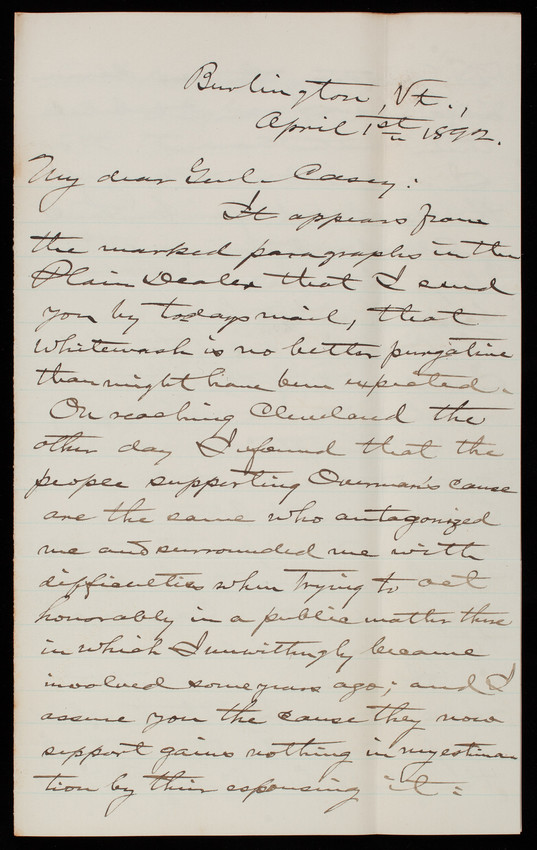 Burlington, Vt.,
April 1st 1892.
My dear Genl Casey:
It appears from
the marked paragraphs in the
Plain Dealer that I send
you by todays mail, that
whitewash is no better purgative
than might have been expected.
On reaching Cleveland the
other day I found that the
people supporting Overman's cause
are the same who antagonized
me and surrounded me with
difficulties when trying to act
honorably in a public matter there
in which I unwittingly became
involved some years ago; and I
assure you the cause they now
support gains nothing in my estima
tion by their espousing it: